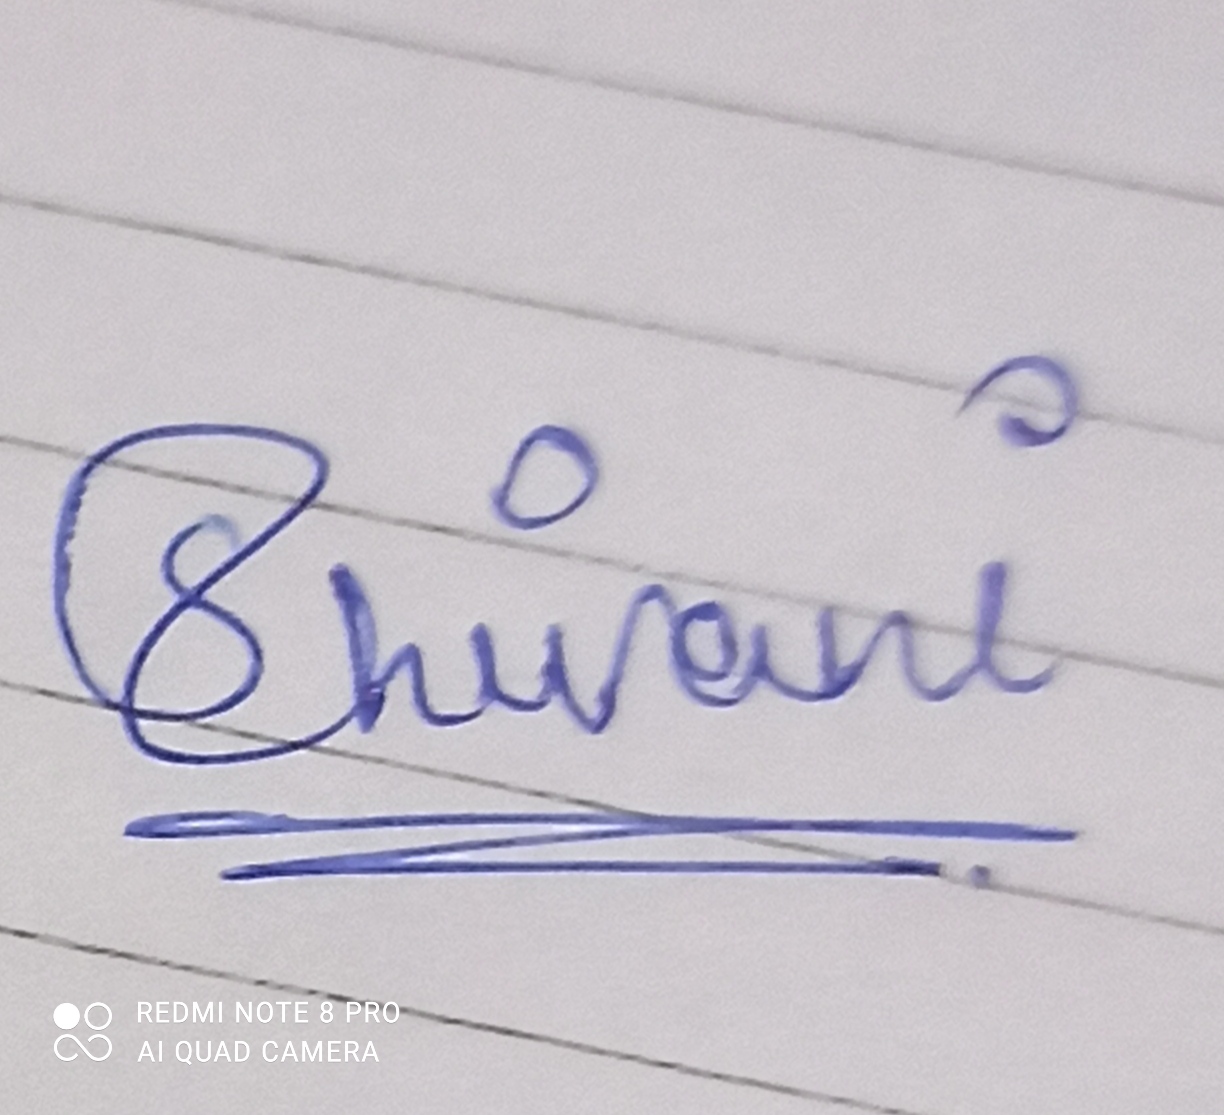 Shivani
REDMI NOTE 8 PRO
AI QUAD CAMERA